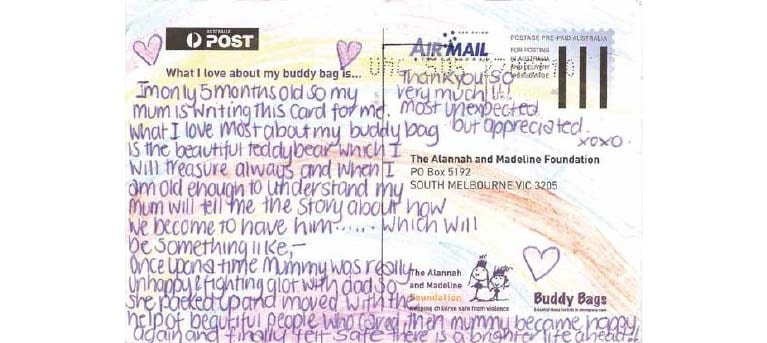 AUSTRALIA
POST
AIR MAIL
PAR AVION
POSTAGE PRE-PAID AUSTRALIA
FOR POSTING
IN AUSTRALIA
AND DELIVERY
What I love about my buddy bag is...
Im only 5 months old so my
mum is writing this card for me.
What I love most about my buddy bag
is the beautiful teddy bear which I
will treasure always and when I
am old enough to understand my
mum will tell me the story about how
we become to have him...... which will
be something like,-
Once upon a time mummy was really
unhappy & fighting alot with dad so
she packed up and moved with the
help of beautiful people who cared, then mummy became happy
again and finally felt safe there is a brighter life ahead!
Thankyou so
very much!!!
most unexpected
but appreciated.
xoxo.
The Alannah and Madeline Foundation
PO Box 5192
SOUTH MELBOURNE VIC 3205
The Alannah
and Madeline
Foundation
Keeping children safe from violence
Buddy Bags